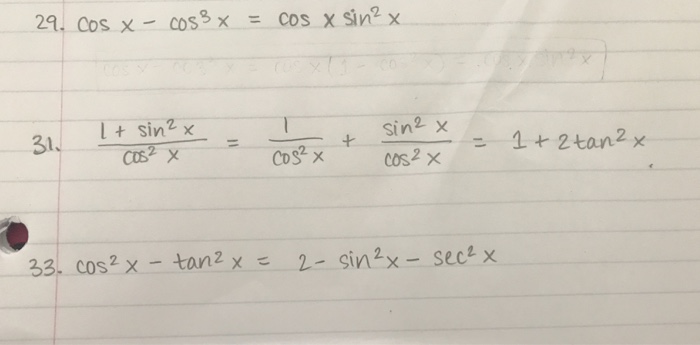 29. cos x - cos³ x = cos x sin² x
31. (1 + sin² x)/(cos² x) = 1/(cos² x) + (sin² x)/(cos² x) = 1 + 2tan² x
33. cos² x - tan² x = 2 - sin² x - sec² x